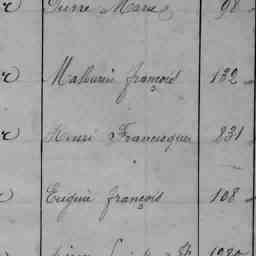 r Pierre Marie 98
r Mathurin françois 132
r Henri Francisque 831
Eugène françois 108